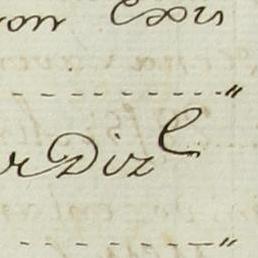 von Exis
- - - - - - - - "
r Dizl
- - - - - - - "